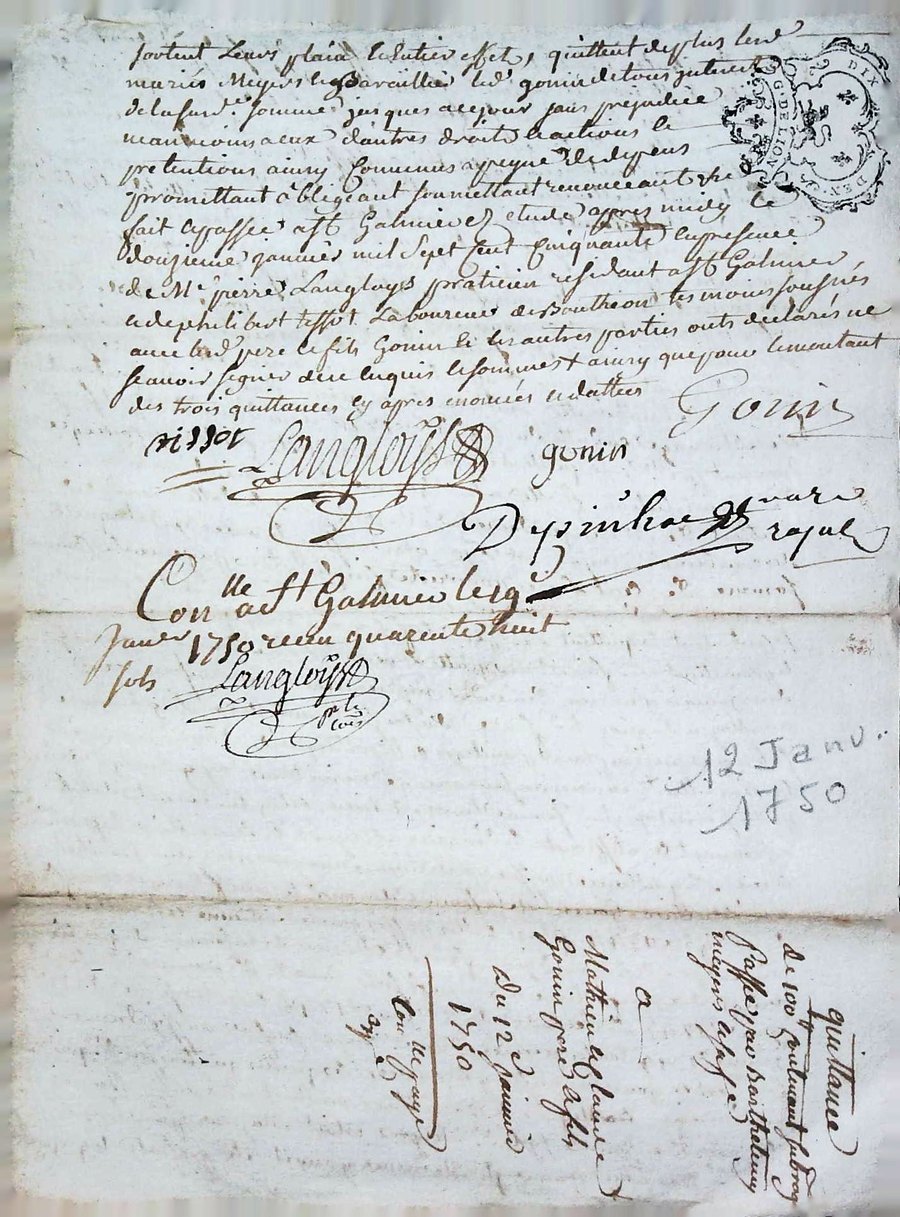 sortent Leurs plain et Entier effet, quittent de plus lesd
mariés Meyers led gonin de tous interest
de la susde. somme jusques a ce jour sans prejudice
neanmoins a eux d'autres droits et actions et
pretentions ainsy Convenus a peyne de depens
promettant obligeant soumettant renonceant &c
fait et passée a st Galmier Etude apres midy Le
douzieme janvier mil sept Cent Cinquante En presence
de Me pierre Langloys praticien residant a st Galmier
et de philibert tissot Laboureur de Bouthéon tesmoins sousnés
avec led pere et fils Gonin et les autres parties onts declarés ne
scavoir signer de ce Enquis et sommes + ainsy que pour le montant
des trois quittances cy apres enoncées et dattées
Gonin
tissot Langloys gonin
Depinhac
nore
royal
Conlle a st Galmier le 19e
Janer 1750 recu quarente huit
sols
Langloys
pr le
G. DE LION
DIX
DEN
12 Janv.
1750
quittance
de 100 ll portant subrog
Passée par Barthelemy
meyers et sa fe
a
Mathieu et Claude
Gonin pere et fils
Du 12e janvier
1750
Conlle payé